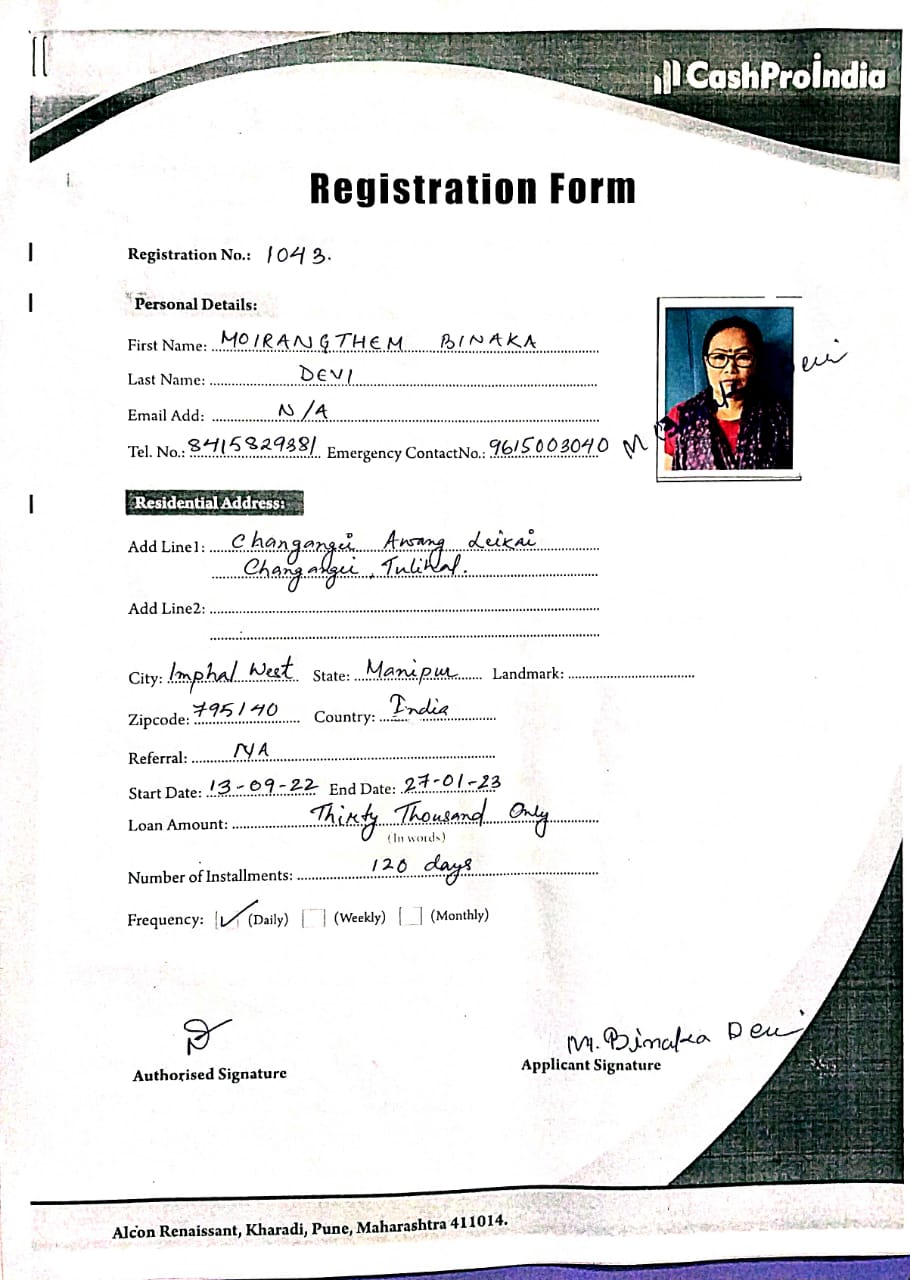 CashProIndia
Registration Form
Registration No.: 1043.
Personal Details:
First Name: MOIRANGTHEM BINAKA
Last Name: DEVI
Email Add: N/A
Tel. No.: 8415829381 Emergency ContactNo.: 9615003040
Residential Address:
Add Line1: Changangei Awang Leikai
Changangei, Tulihal.
Add Line2:
City: Imphal West State: Manipur Landmark:
Zipcode: 795140 Country: India
Referral: NA
Start Date: 13-09-22 End Date: 27-01-23
Loan Amount: Thirty Thousand Only
(In words)
Number of Installments: 120 days
Frequency: (Daily) (Weekly) (Monthly)
M. Binaka Devi
Authorised Signature Applicant Signature
Alcon Renaissant, Kharadi, Pune, Maharashtra 411014.